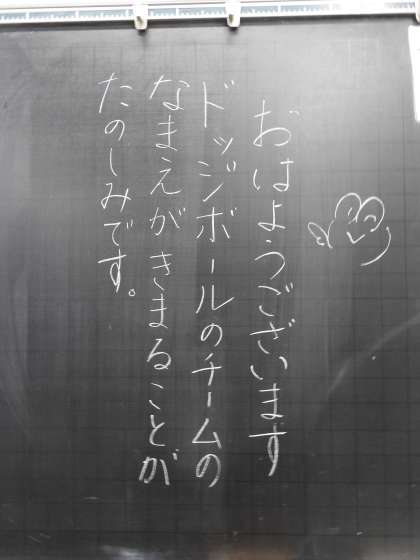 おはようございます
ドッジボールのチームの
なまえがきまることが
たのしみです。